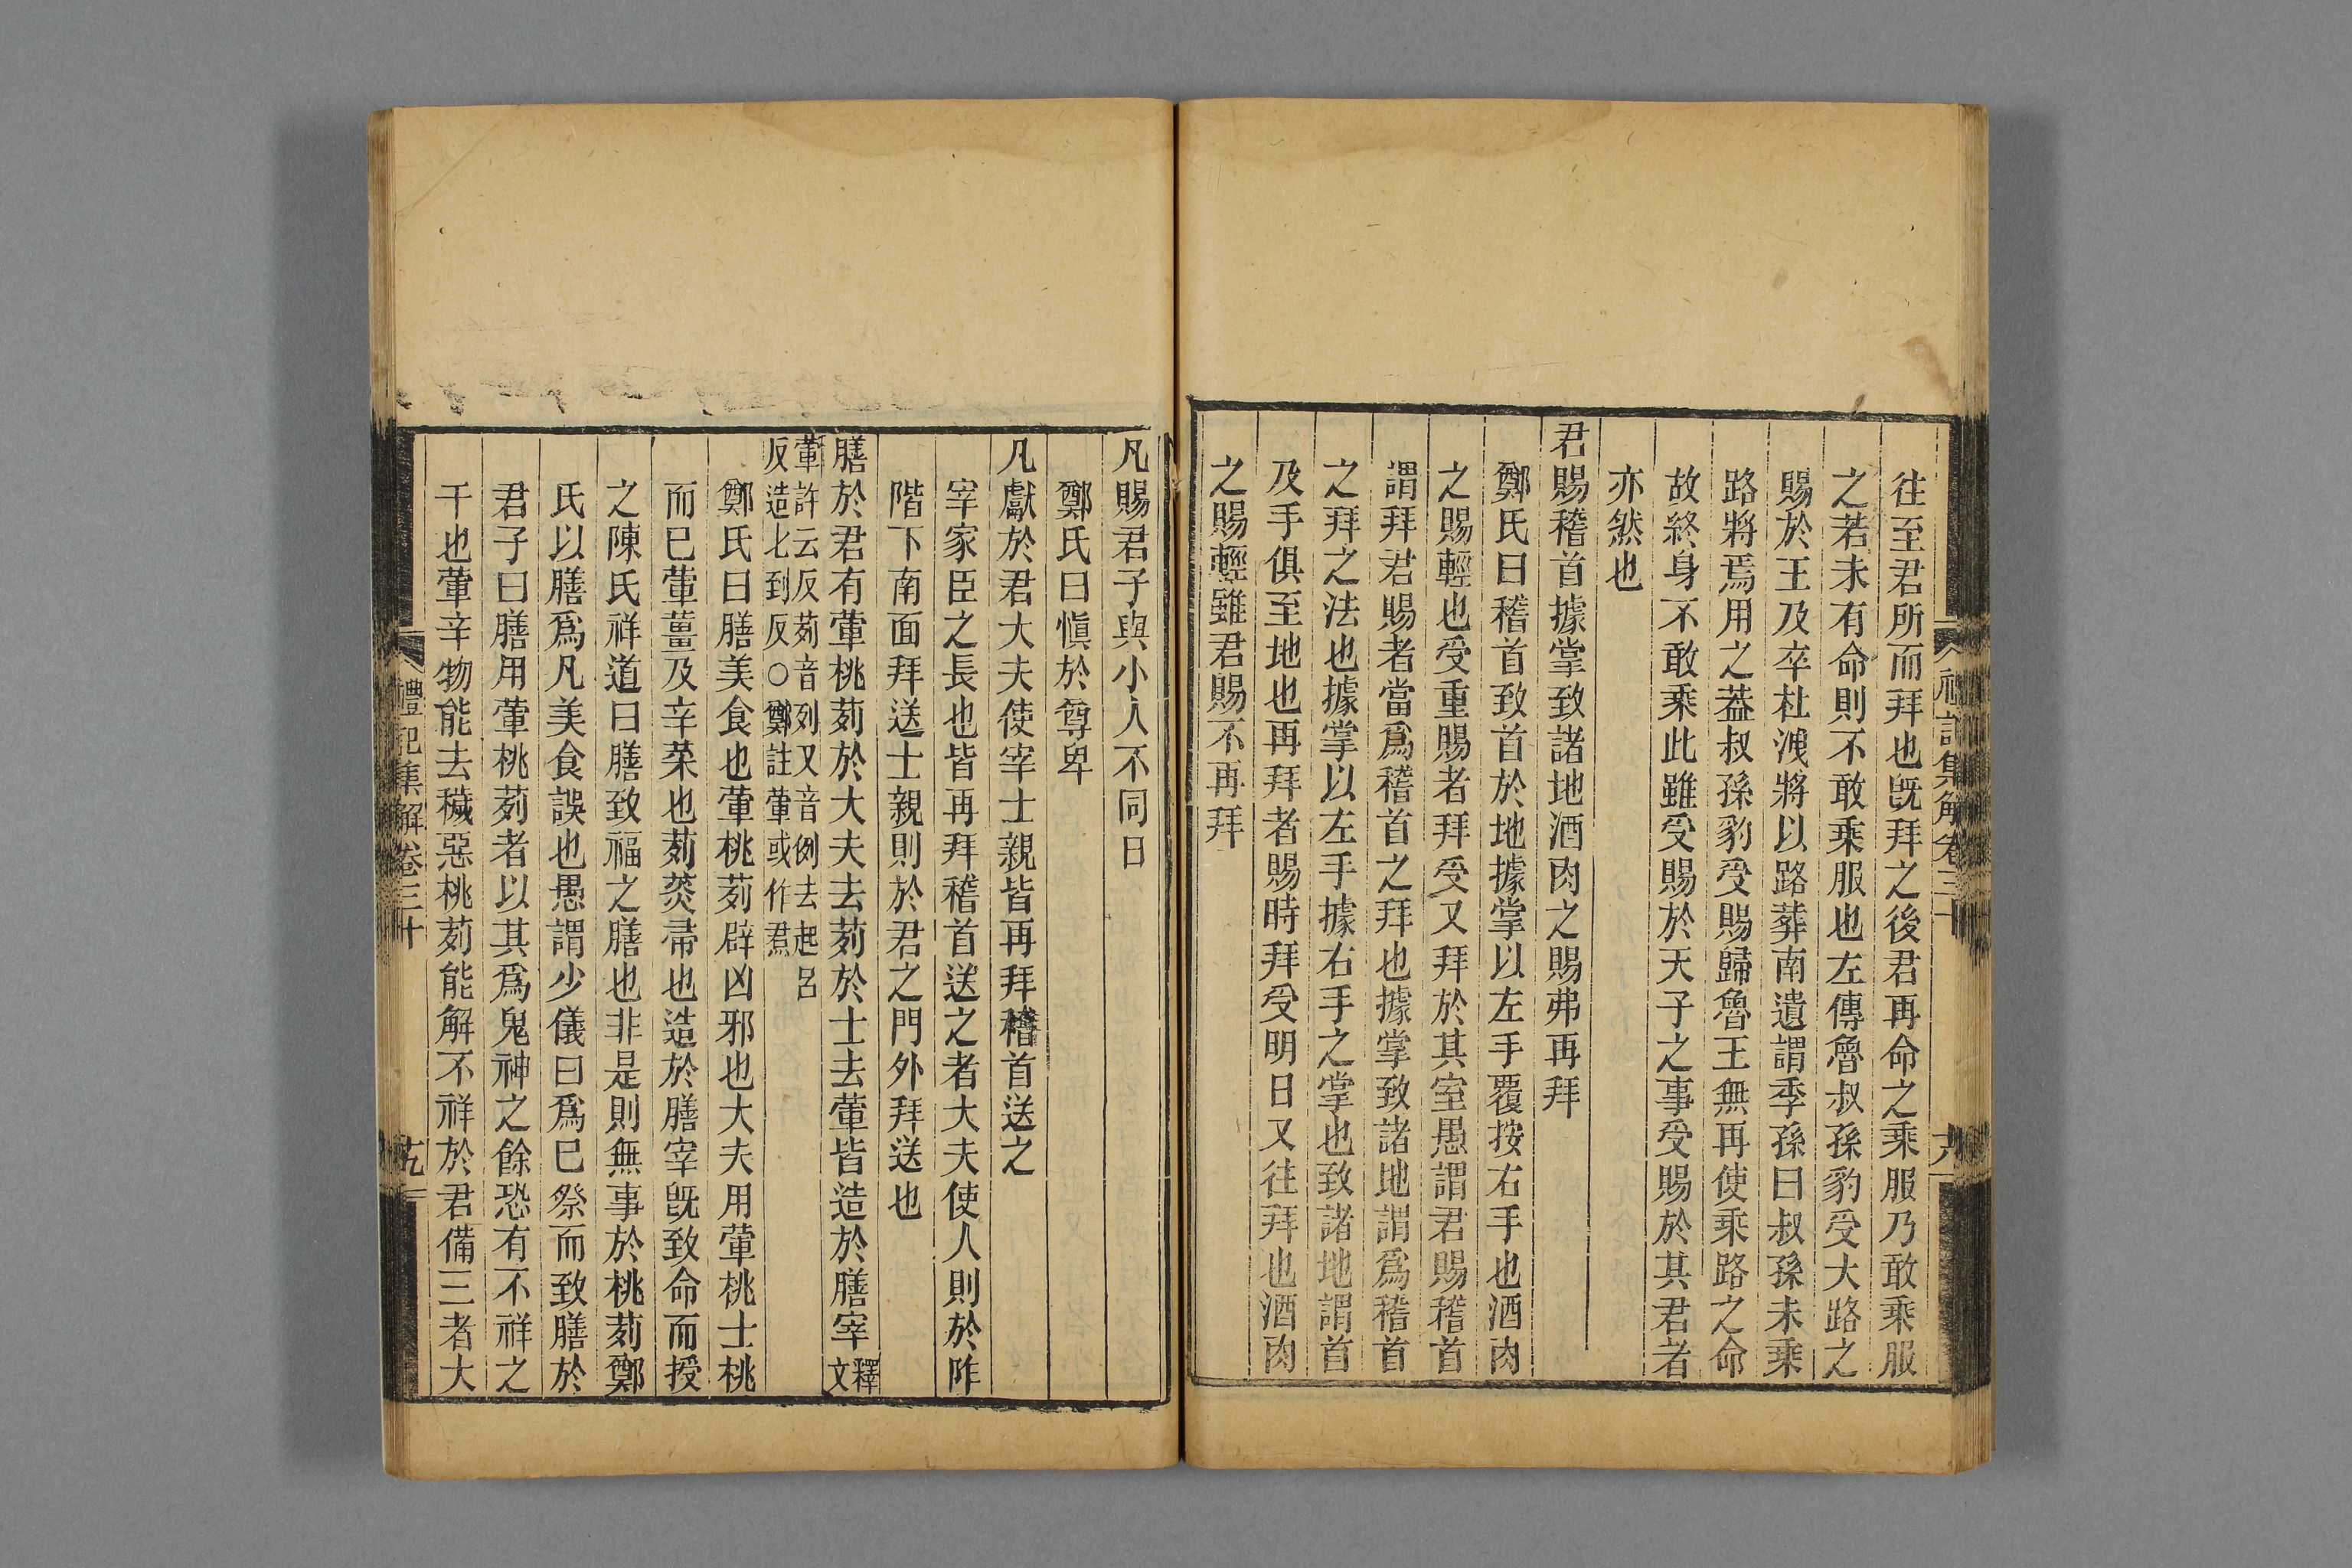 禮記集解卷三十
六
往至君所而拜也旣拜之後君再命之乘服乃敢乘服
之若未有命則不敢乘服也左傳魯叔孫豹受大路之
賜於王及卒杜洩將以路葬南遺謂季孫曰叔孫未乘
路將焉用之葢叔孫豹受賜歸魯王無再使乘路之命
故終身不敢乘此雖受賜於天子之事受賜於其君者
亦然也
君賜稽首據掌致諸地酒肉之賜弗再拜
鄭氏曰稽首致首於地據掌以左手覆按右手也酒肉
之賜輕也受重賜者拜受又拜於其室愚謂君賜稽首
謂拜君賜者當爲稽首之拜也據掌致諸地謂爲稽首
之拜之法也據掌以左手據右手之掌也致諸地謂首
及手俱至地也再拜者賜時拜受明日又往拜也酒肉
之賜輕雖君賜不再拜
凡賜君子與小人不同日
鄭氏曰愼於尊卑
凡獻於君大夫使宰士親皆再拜稽首送之
宰家臣之長也皆再拜稽首送之者大夫使人則於阼
階下南面拜送士親則於君之門外拜送也
膳於君有葷桃茢於大夫去茢於士去葷皆造於膳宰釋文
葷許云反茢音列又音例去起呂
反造七到反○鄭註葷或作焄
鄭氏曰膳美食也葷桃茢辟凶邪也大夫用葷桃士桃
而已葷薑及辛菜也茢菼帚也造於膳宰旣致命而授
之陳氏祥道曰膳致福之膳也非是則無事於桃茢鄭
氏以膳爲凡美食誤也愚謂少儀曰爲已祭而致膳於
君子曰膳用葷桃茢者以其爲鬼神之餘恐有不祥之
干也葷辛物能去穢惡桃茢能解不祥於君備三者大
禮記集解卷三十